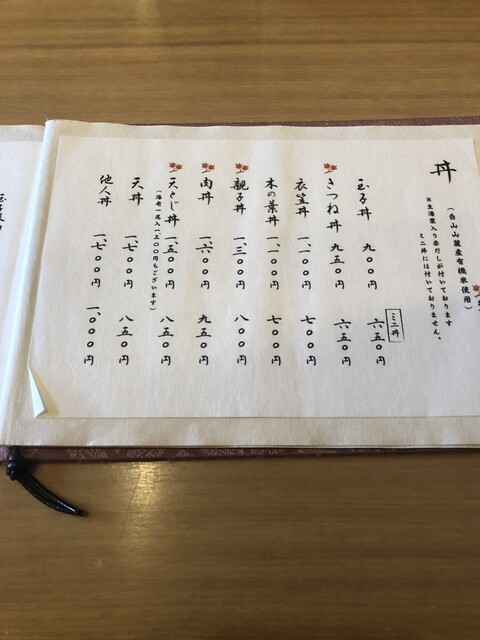 丼
(白山山麓産有機米使用)
※生湯葉入り赤だしが付いております
ミニ丼には付いておりません。
ミニ丼
玉子丼 九〇〇円 六五〇円
きつね丼 九五〇円 六五〇円
衣笠丼 一、一〇〇円 七〇〇円
木の葉丼 一、一〇〇円 七〇〇円
親子丼 一、三〇〇円 八〇〇円
肉丼 一、六〇〇円 九五〇円
天とじ丼 一、五〇〇円 八五〇円
(海老一尾入一五〇〇円もございます)
天丼 一、七〇〇円 八五〇円
他人丼 一、七〇〇円 一、〇〇〇円